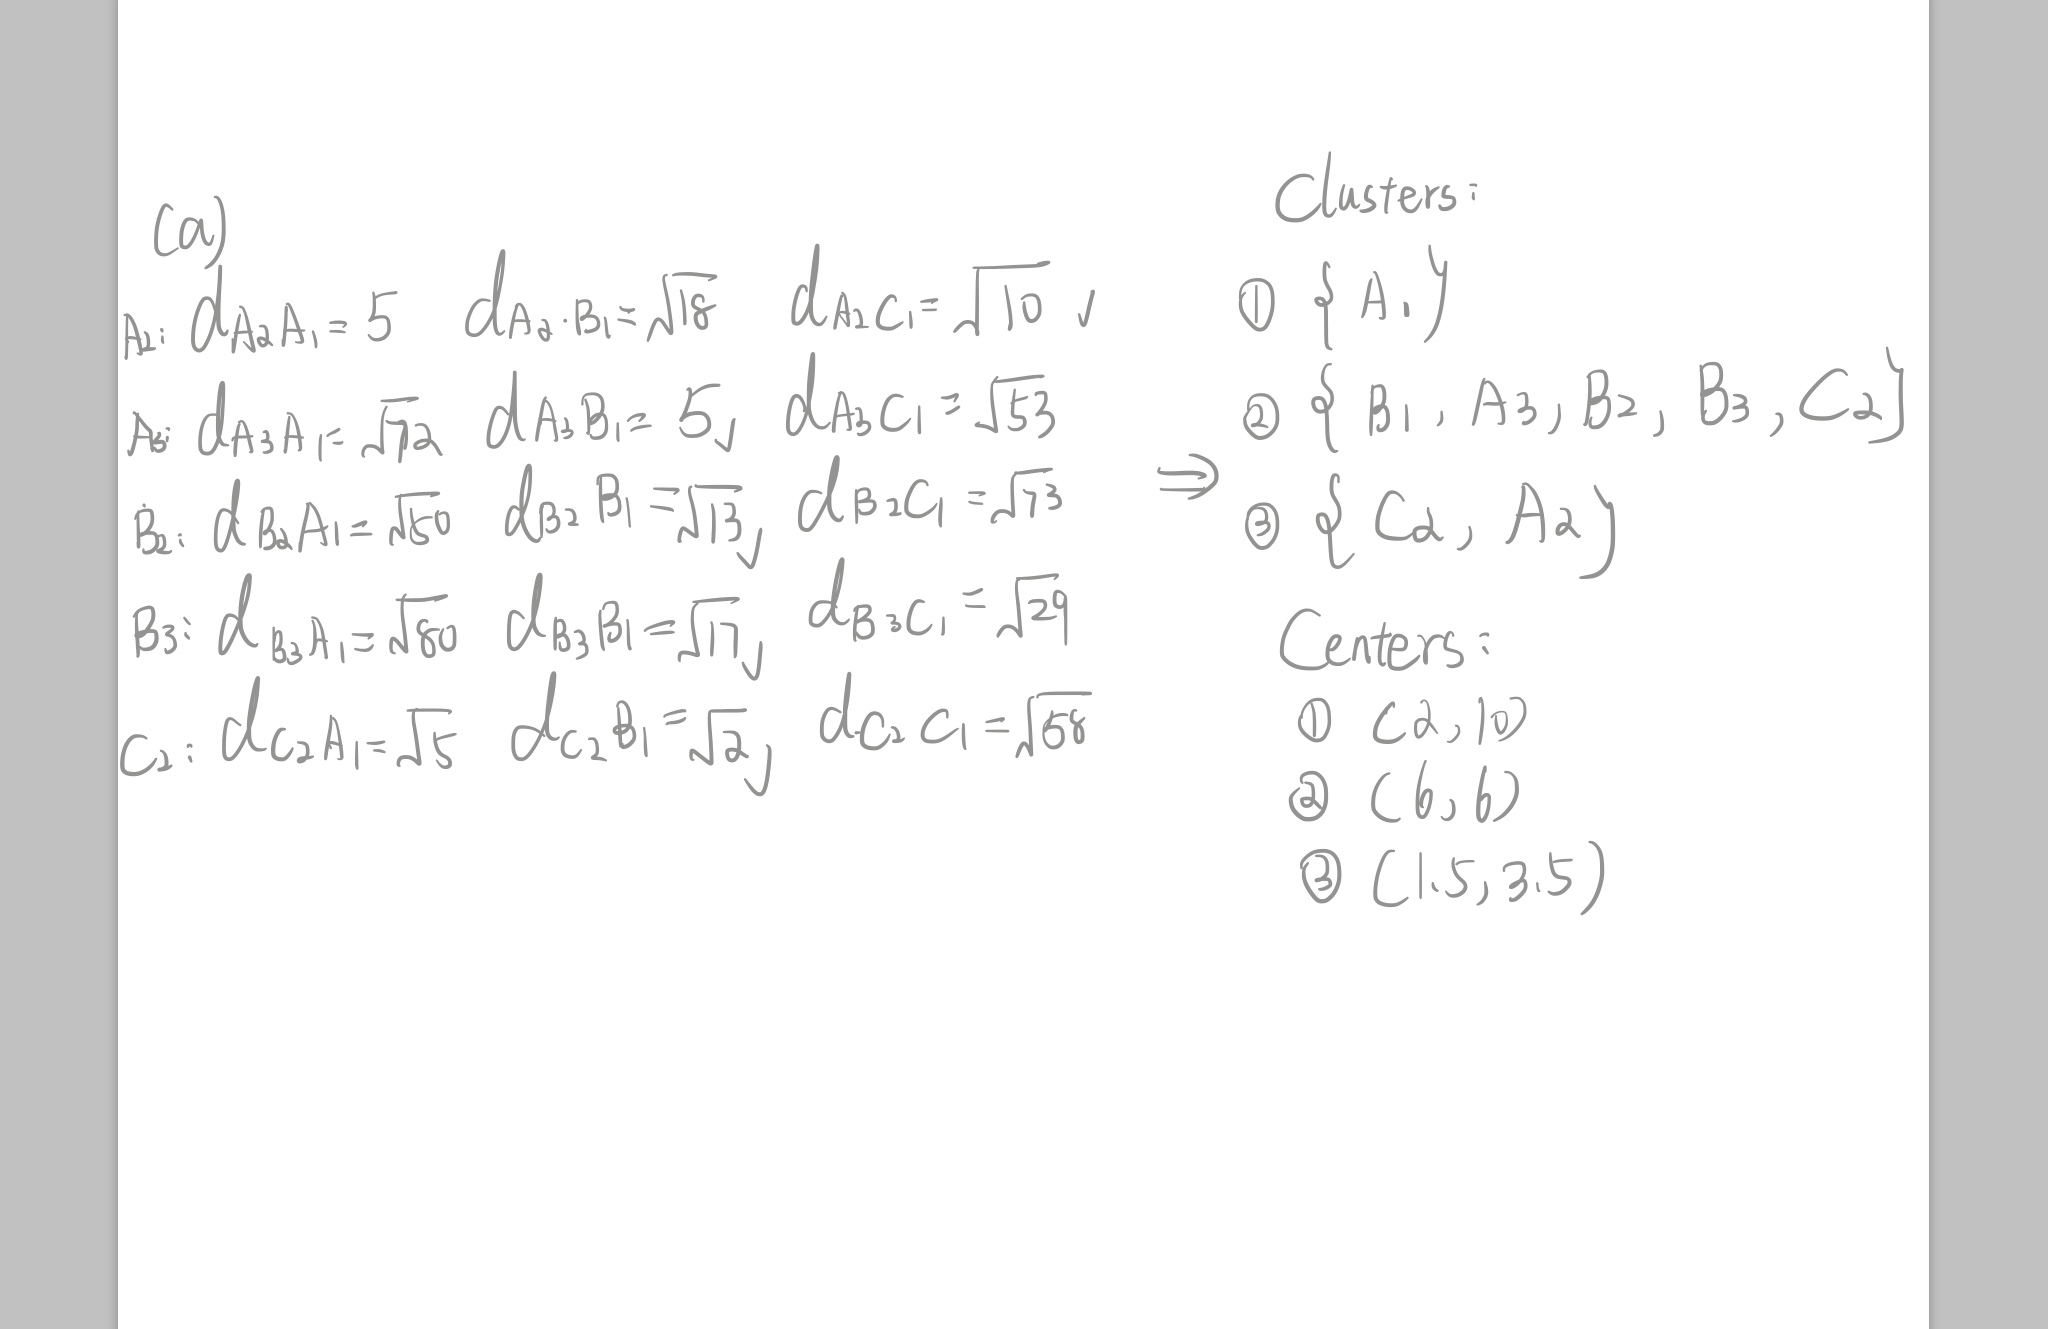 (a)
A2: dA2A1=5 dA2·B1=√18 dA2C1=√10 ✓
A3: dA3A1=√72 dA3B1=5✓ dA3C1=√53
B2: dB2A1=√50 dB2B1=√13✓ dB2C1=√73
B3: dB3A1=√80 dB3B1=√17✓ dB3C1=√29
C2: dC2A1=√5 dC2B1=√2✓ dC2C1=√58
⇒
Clusters:
① {A1}
② {B1, A3, B2, B3, C2}
③ {C2, A2}
Centers:
① (2,10)
② (6,6)
③ (1.5,3.5)